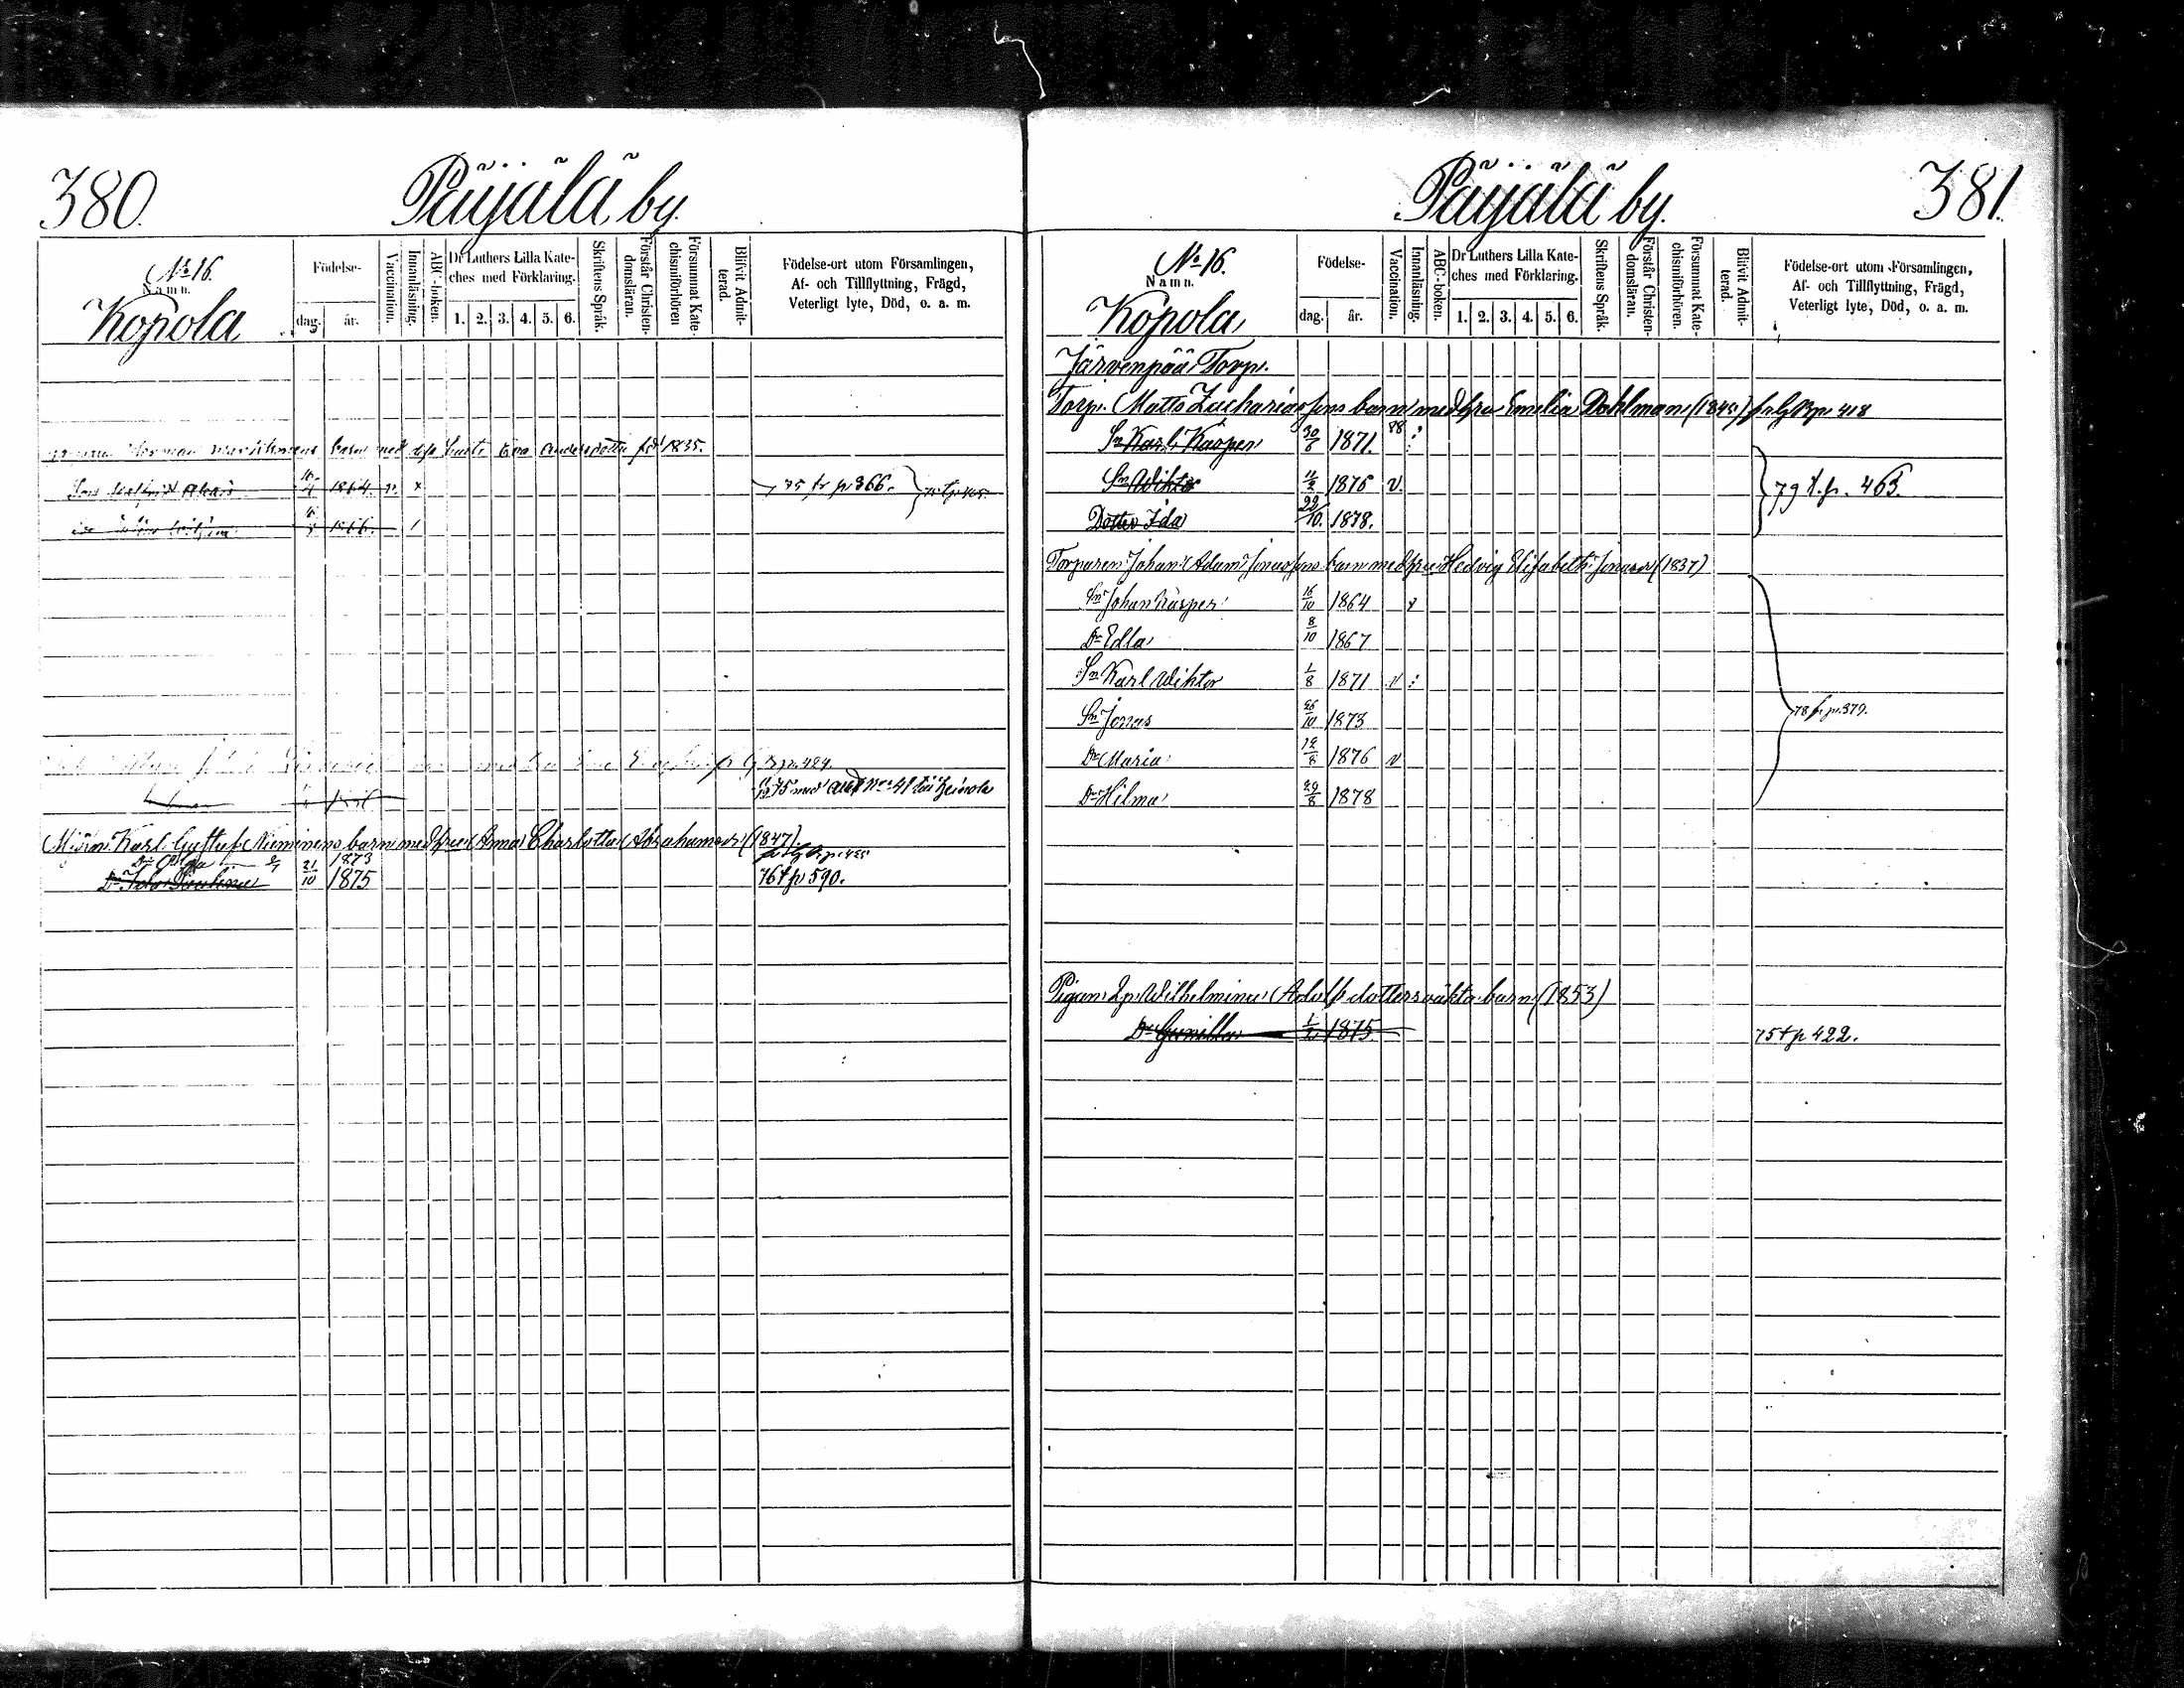 380.
Päijälä by.
No 16.
Namn.
Kopola
Födelse-
dag.
år.
Vaccination.
Innanläsning.
ABC-boken.
Dr Luthers Lilla Kate-
ches med Förklaring.
1. 2. 3. 4. 5. 6.
Skriftens Språk.
Förstår Christen-
domsläran.
Försummat Kate-
chismiförhören
Blifvit Admit-
terad.
Födelse-ort utom Församlingen,
Af- och Tillflyttning, Frägd,
Veterligt lyte, Död, o. a. m.
Herman barn med Eva Andersdotter föd 1835.
1864. v. x 75 fr p 366.
1866.
p. 424.
75 med N:o 41 till Heinola
Karl Gustaf Nieminens barn med hru Anna Charlotta Abrahamsdr (1847).
Dr Olga 1873
Dr 21/10 1875 76 t p 590.
Päijälä by.
381.
No 16.
Namn.
Kopola
Födelse-
dag.
år.
Vaccination.
Innanläsning.
ABC-boken.
Dr Luthers Lilla Kate-
ches med Förklaring.
1. 2. 3. 4. 5. 6.
Skriftens Språk.
Förstår Christen-
domsläran.
Försummat Kate-
chismiförhören.
Blifvit Admit-
terad.
Födelse-ort utom Församlingen,
Af- och Tillflyttning, Frägd,
Veterligt lyte, Död, o. a. m.
Järvenpää Torp.
Torp. Matts Zachariassons barn med hru Emelia Dahlman (1845) 418
Sn Karl Kasper 30/8 1871.
Sn Wiktor 1876 v. 79 t. p. 463.
Dotter Ida 22/10. 1878.
Torparen Johan Adam Jonassons barn med hru Hedvig Elisabeth Jonasdr (1837)
Sn Johan Kasper 16/10 1864
Dr Edla 8/10 1867
Sn Karl Wiktor 1/8 1871 v :
Sn Jonas 26/10 1873 78 fr p. 379.
Dr Maria 12/8 1876 v
Dr Hilma 29/8 1878
Pigan Wilhelmina Adolfsdotters oäkta barn (1853)
Dr Gunilla 1/2 1875. 75 t p 422.